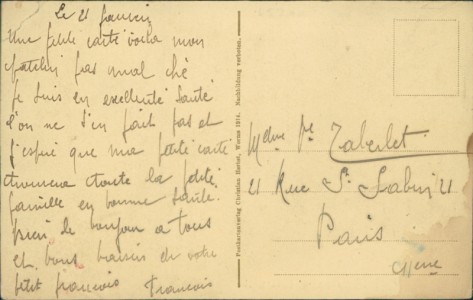 Le 21 Janvier
Une petite carte voila mon
patelin pas mal ché
je suis en excellente santé
l'on ne s'en fait pas et
j'espère que ma petite carte
trouvera toute la petite
famille en bonne santé.
bien de bonjour a tous
et bons baisers de votre
petit francois Francois
Postkartenverlag Christian Herbst, Worms 1914. Nachbildung verboten.
Mme Taberlet
21 Rue St Sabin 21
Paris
11eme